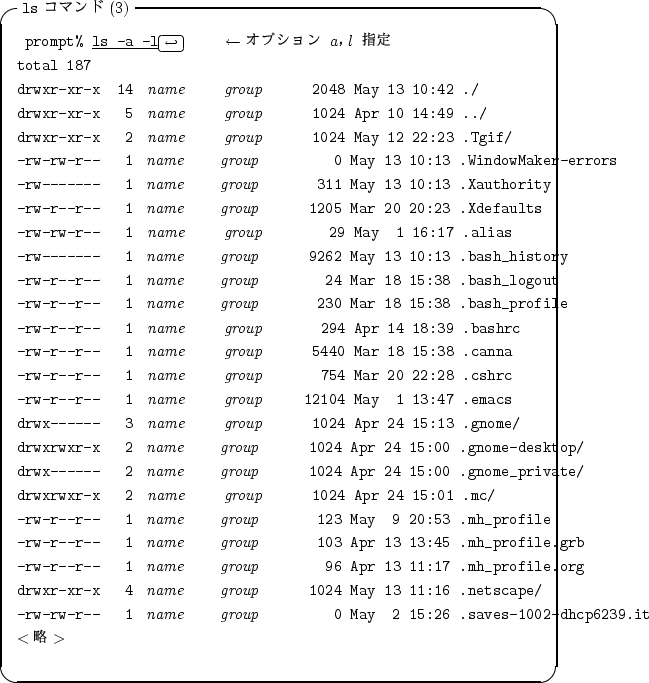 ls コマンド (3)
prompt% ls -a -l ← オプション a, l 指定
total 187
drwxr-xr-x 14 name group 2048 May 13 10:42 ./
drwxr-xr-x 5 name group 1024 Apr 10 14:49 ../
drwxr-xr-x 2 name group 1024 May 12 22:23 .Tgif/
-rw-rw-r-- 1 name group 0 May 13 10:13 .WindowMaker-errors
-rw------- 1 name group 311 May 13 10:13 .Xauthority
-rw-r--r-- 1 name group 1205 Mar 20 20:23 .Xdefaults
-rw-rw-r-- 1 name group 29 May 1 16:17 .alias
-rw------- 1 name group 9262 May 13 10:13 .bash_history
-rw-r--r-- 1 name group 24 Mar 18 15:38 .bash_logout
-rw-r--r-- 1 name group 230 Mar 18 15:38 .bash_profile
-rw-r--r-- 1 name group 294 Apr 14 18:39 .bashrc
-rw-r--r-- 1 name group 5440 Mar 18 15:38 .canna
-rw-r--r-- 1 name group 754 Mar 20 22:28 .cshrc
-rw-r--r-- 1 name group 12104 May 1 13:47 .emacs
drwx------ 3 name group 1024 Apr 24 15:13 .gnome/
drwxrwxr-x 2 name group 1024 Apr 24 15:00 .gnome-desktop/
drwx------ 2 name group 1024 Apr 24 15:00 .gnome_private/
drwxrwxr-x 2 name group 1024 Apr 24 15:01 .mc/
-rw-r--r-- 1 name group 123 May 9 20:53 .mh_profile
-rw-r--r-- 1 name group 103 Apr 13 13:45 .mh_profile.grb
-rw-r--r-- 1 name group 96 Apr 13 11:17 .mh_profile.org
drwxr-xr-x 4 name group 1024 May 13 11:16 .netscape/
-rw-rw-r-- 1 name group 0 May 2 15:26 .saves-1002-dhcp6239.it
< 略 >